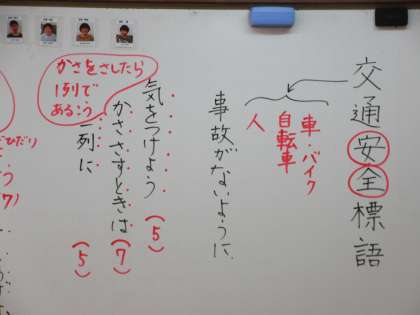 交通安全標語
車・バイク
自転車
人
事故がないように
気をつけよう (5)
かささすときは (7)
一列に (5)
かさをさしたら
1列で
あるこう